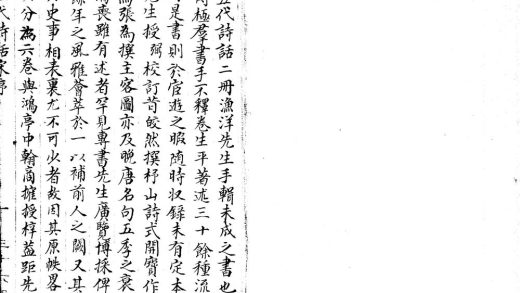 五代詩話二冊漁洋先生手輯未成之書也
極羣書手不釋卷生平著述三十餘種流
是書則於宦遊之暇隨時収録未有定本
先生授弼校訂昔皎然撰杼山詩式開齊作
為張為撰主客圖亦及晚唐名句五季之衰
喪雖有述者罕見專書先生廣覽博採俾
年之風雅薈萃於一以補前人之闕又其
史事相表裏尤不可少者故因其原帙畧
分為六卷與鴻亭中翰商搉授梓葢距先
代詩話宋序